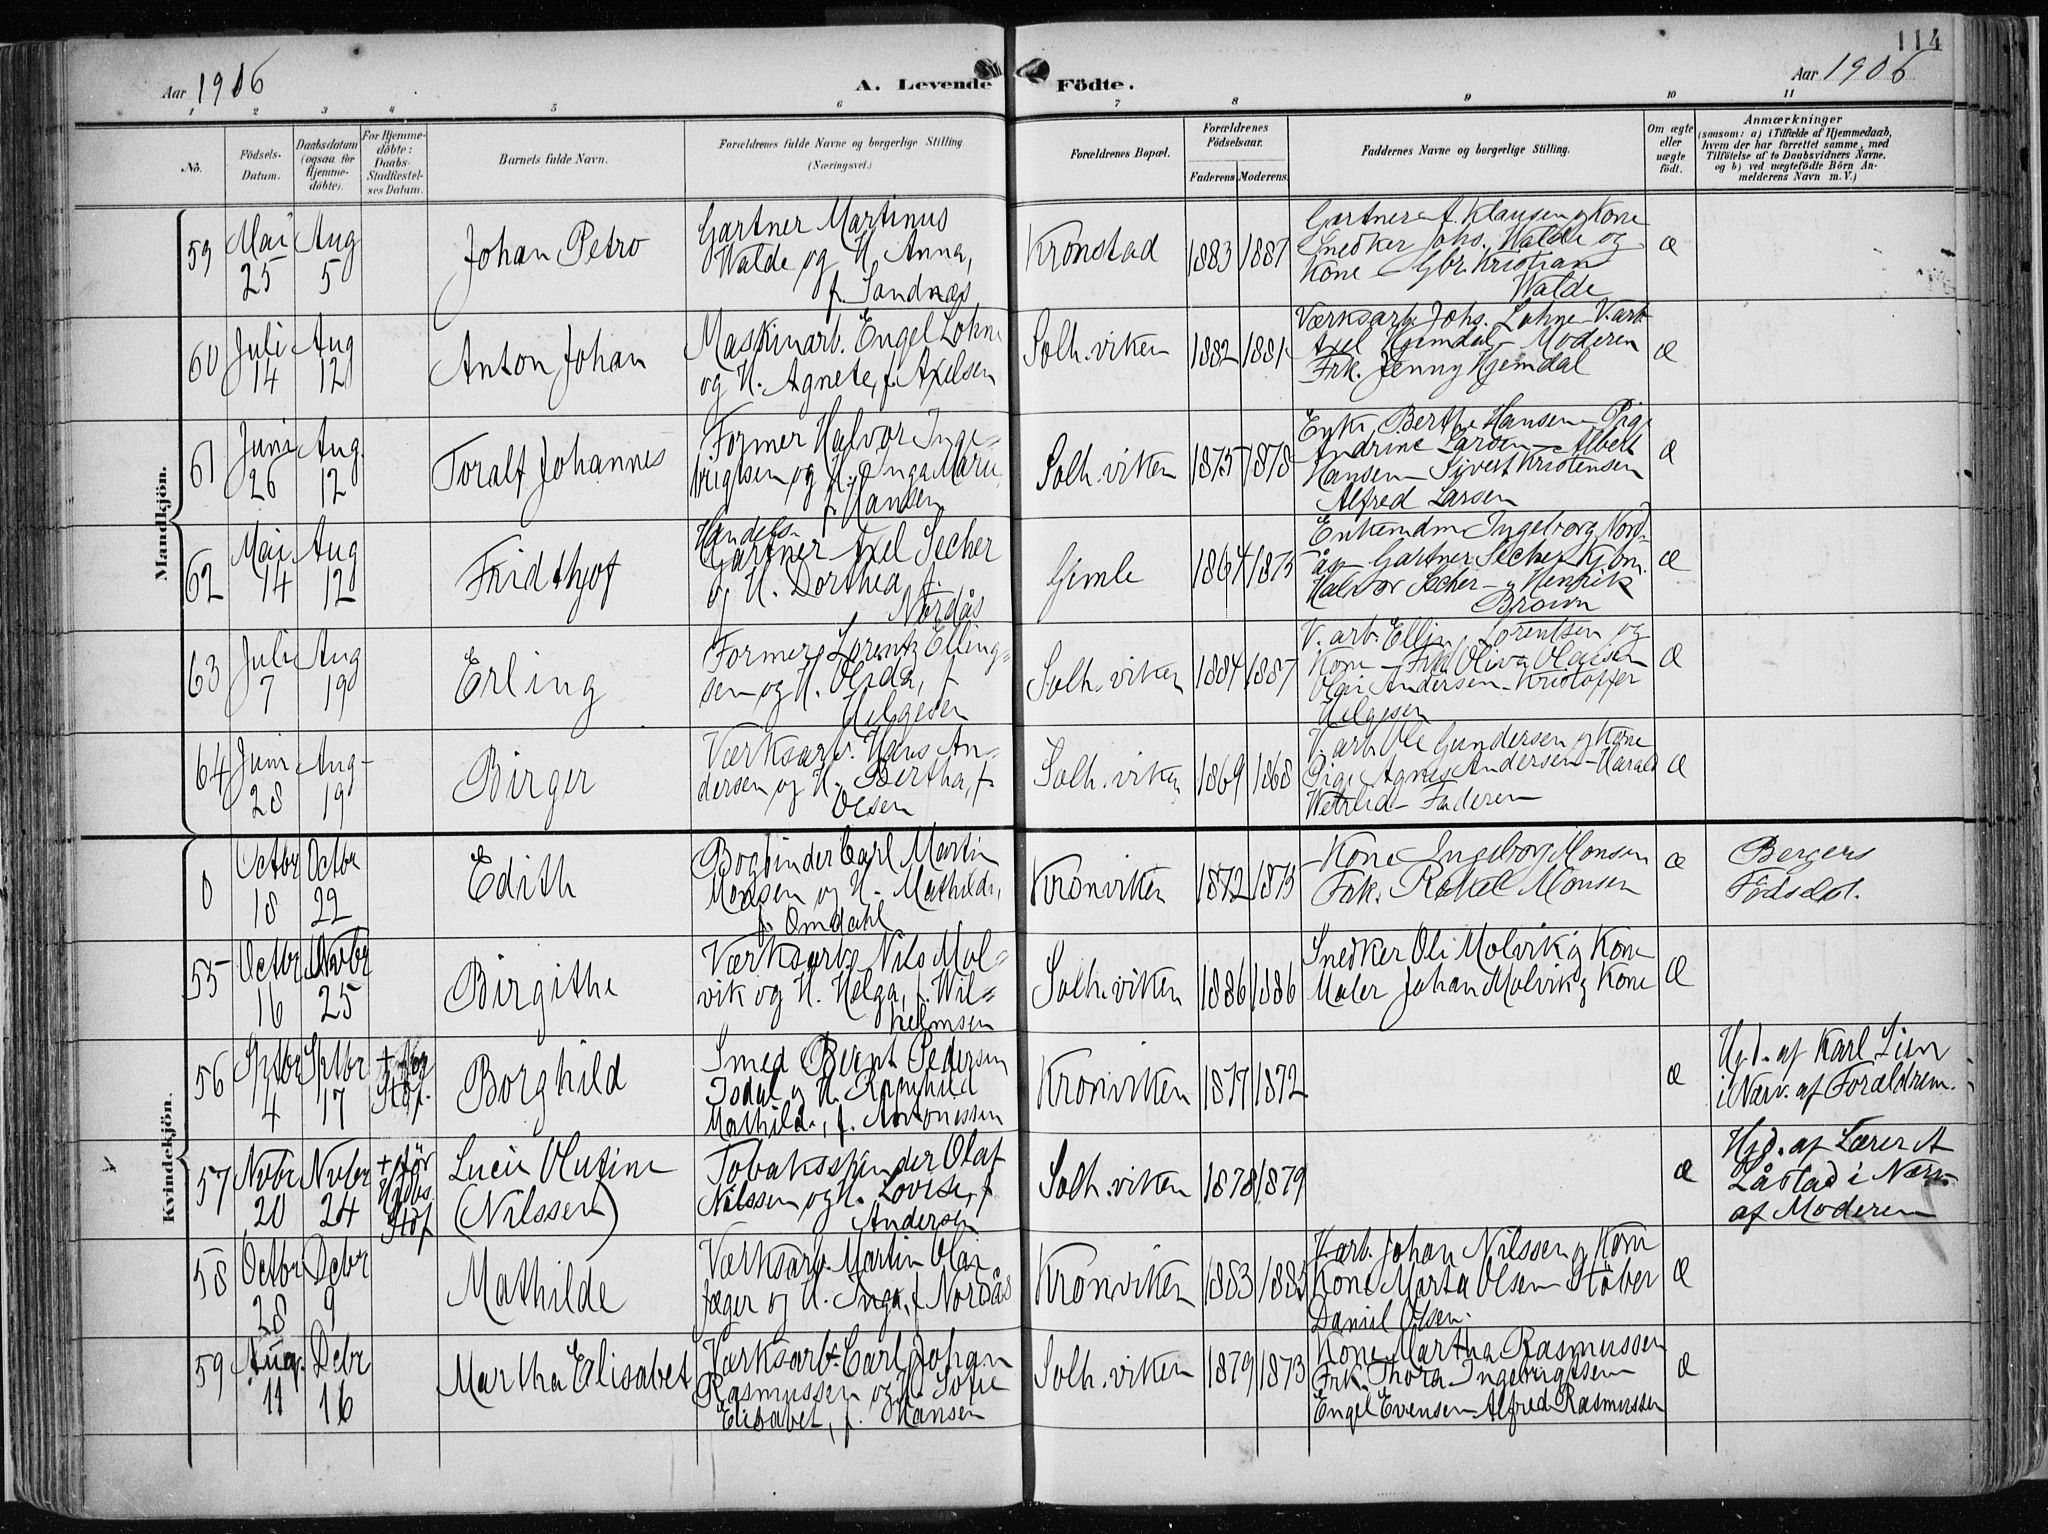 114
Aar 1906
A. Levende Födte.
Aar 1906
1 2 3 4 5 6 7 8 9 10 11
No.
Födsels-
Datum.
Daabsdatum
(ogsaa for
Hjemme-
döbte).
For Hjemme-
döbte:
Daabs-
Stadfæstel-
ses Datum.
Barnets fulde Navn.
Forældrenes fulde Navne og borgerlige Stilling
(Næringsvei.)
Forældrenes Bopæl.
Forældrenes
Födselsaar.
Faderens Moderens
Faddernes Navne og borgerlige Stilling.
Om ægte
eller
uægte
födt.
Anmærkninger
(saasom: a) i Tilfælde af Hjemmedaab,
hvem der har forrettet samme, med
Tilföielse af to Daabsvidners Navne,
og b) ved uægtefödte Börn An-
melderens Navn m. V.)
Mandkjön.
59
Mai
25
Aug
5
Johan Petro
Gartner Martinus
Walde og H. Anna,
f. Sandnæs
Kronstad
1883
1887
Gartner A. Klausen og Kone
Snedker Johs. Walde og
Kone - Gbr. Kristian
Walde
æ
60
Juli
14
Aug
12
Anton Johan
Maskinarb. Engel Lohne
og H. Agnete, f. Axelsen
Solh.viken
1882
1881
Værksarb. Johs. Lohne - V.arb
Axel Hjemdal - Moderen
Frk. Jenny Hjemdal
æ
61
Juni
26
Aug.
12
Toralf Johannes
Former Halvor Inge-
brigtsen og H. Inga Marie,
f. Hansen
Solh.viken
1875
1878
Enke Berthe Hansen - Pige
Andrine Larsen - Albert
Hansen - Sivert Kristensen
Alfred Larsen
æ
62
Mai
14
Aug
12
Fridthjof
Handels-
Gartner Axel Secher
og H. Dorthea, f.
Nordås
Gimle
1864
1873
Enkemdm Ingeborg Nord-
ås - Gartner Secher
Halvor Secher - Henrik
Brown
æ
63
Juli
7
Aug
19
Erling
Former Lorentz Elling-
sen og H. Olida, f.
Helgesen
Solh.viken
1884
1887
V.arb. Lorentsen og
Kone - Frk Oliva Olausen
Olai Andersen - Kristoffer
Helgesen
æ
64
Juni
28
Aug-
19
Birger
Værksarb. Hans An-
dersen og H. Bertha, f.
Olsen
Solh.viken
1869
1868
V.arb Ole Gundersen og Kone
Pige Agnes Andersen - Harald
Wetlid - Faderen
æ
Kvindekjön.
0
Octbr
18
Octbr
22
Edith
Bogbinder Carl Martin
Monsen og H. Mathilde,
f. Omdahl
Kronviken
1872
1873
Kone Ingeborg Monsen
Frk. Rakel Monsen
æ
Bergens
Födselst.
55
Octbr
16
Novbr
25
Birgithe
Værksarb. Nils Mol-
vik og H. Helga, f. Wil-
helmsen
Solh.viken
1886
1886
Snedker Ole Molvik og Kone
Maler Johan Molvik og Kone
æ
56
Sptbr
4
Sptbr
17
Borghild
Smed Bernt Pedersen
Isdal og H. Ragnhild
Mathilde, f. Antonessen
Kronviken
1877
1872
æ
Hjd. af Karl Lien
i Nærv. af Forældrene.
57
Novbr
20
Novbr
24
+ för
Hjdbs.
Stöf
Lucie Olufine
(Nilssen)
Tobaksspinder Olaf
Nilssen og H. Lovise, f.
Andersen
Solh.viken
1878
1879
æ
Hjd. af Lærer A
Låstad i Nærv.
af Moderen
58
Octbr
28
Debr
9
Mathilde
Værksarb. Martin Olai
Jæger og H. Inga, f. Nordås
Kronviken
1883
1883
V.arb. Johan Nilssen og Kone
Kone Marta Olsen Stöber
Daniel Olsen.
æ
59
Aug.
11
Debr
16
Martha Elisabet
Værksarb. Carl Johan
Rasmussen og H. Sofie
Elisabet, f. Hansen
Solh.viken
1879
1873
Kone Martha Rasmussen
Frk. Thora Ingebrigtsen
Engel Evensen - Alfred Rasmussen
æ